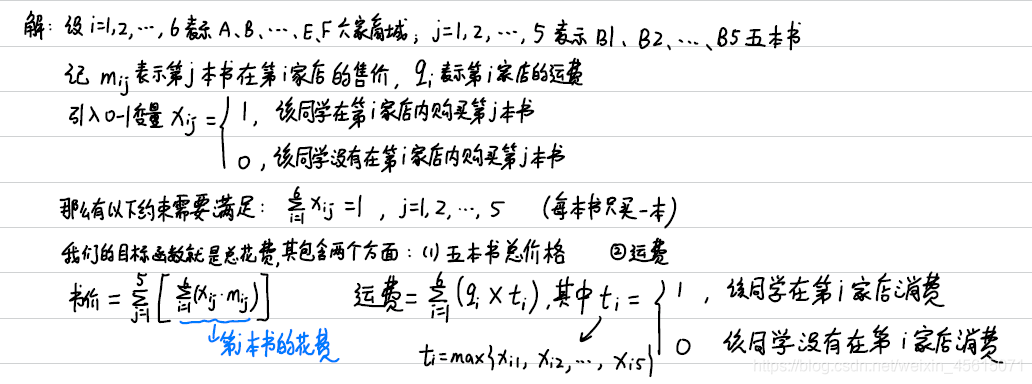 解：设 i=1,2,⋯,6 表示 A、B、⋯、E、F 六家商城；j=1,2,⋯,5 表示 B1、B2、⋯、B5 五本书
记 mij 表示第 j 本书在第 i 家店的售价，qi 表示第 i 家店的运费
引入0-1变量 xij = { 1，该同学在第 i 家店内购买第 j 本书
0，该同学没有在第 i 家店内购买第 j 本书
那么有以下约束需要满足：∑_{i=1}^{6} xij = 1，j=1,2,⋯,5 （每本书只买一本）
我们的目标函数就是总花费，其包含两个方面：(1) 五本书总价格 ②运费
书价 = ∑_{j=1}^{5} [ ∑_{i=1}^{6} (xij·mij) ] 运费 = ∑_{i=1}^{6} (qi × ti)，其中 ti = { 1，该同学在第 i 家店消费
↓第j本书的花费
0 该同学没有在第 i 家店消费
ti = max{xi1, xi2, ⋯, xi5}
https://blog.csdn.net/weixin_45615071